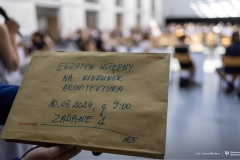 EGZAMIN WSTĘPNY
NA KIERUNEK
ARCHITEKTURA
10.07.2024, g. 9:00
ZADANIE 1
165